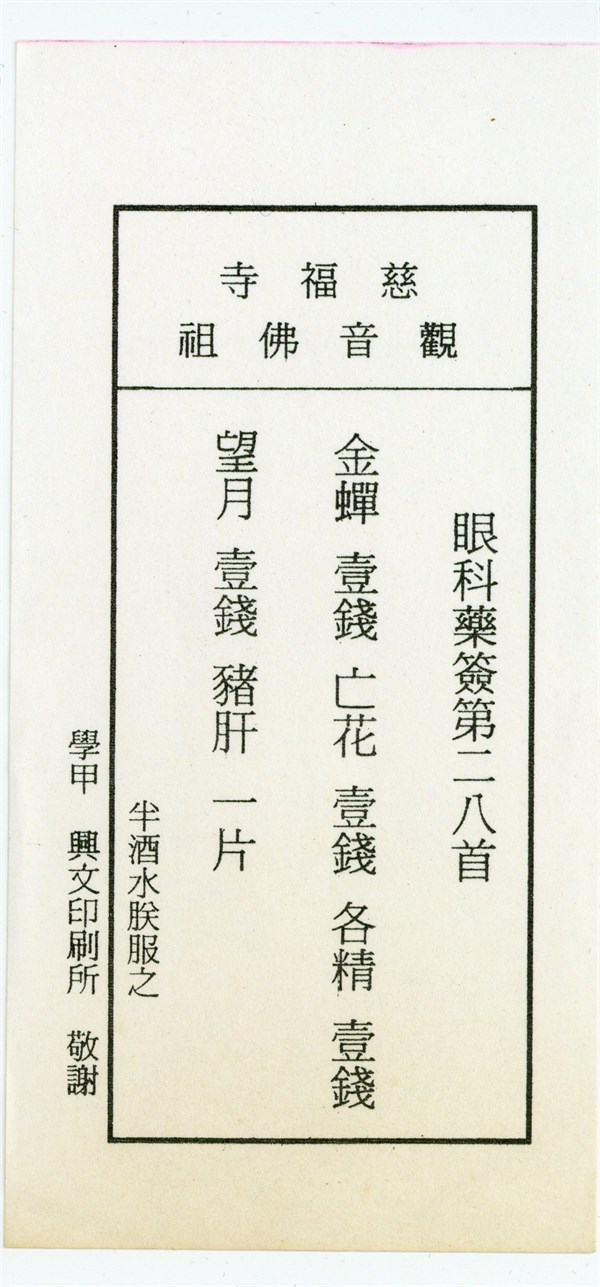 慈福寺
觀音佛祖
眼科藥簽第二八首
金蟬 壹錢 亡花 壹錢 各精 壹錢
望月 壹錢 豬肝 一片
半酒水朕服之
學甲 興文印刷所 敬謝